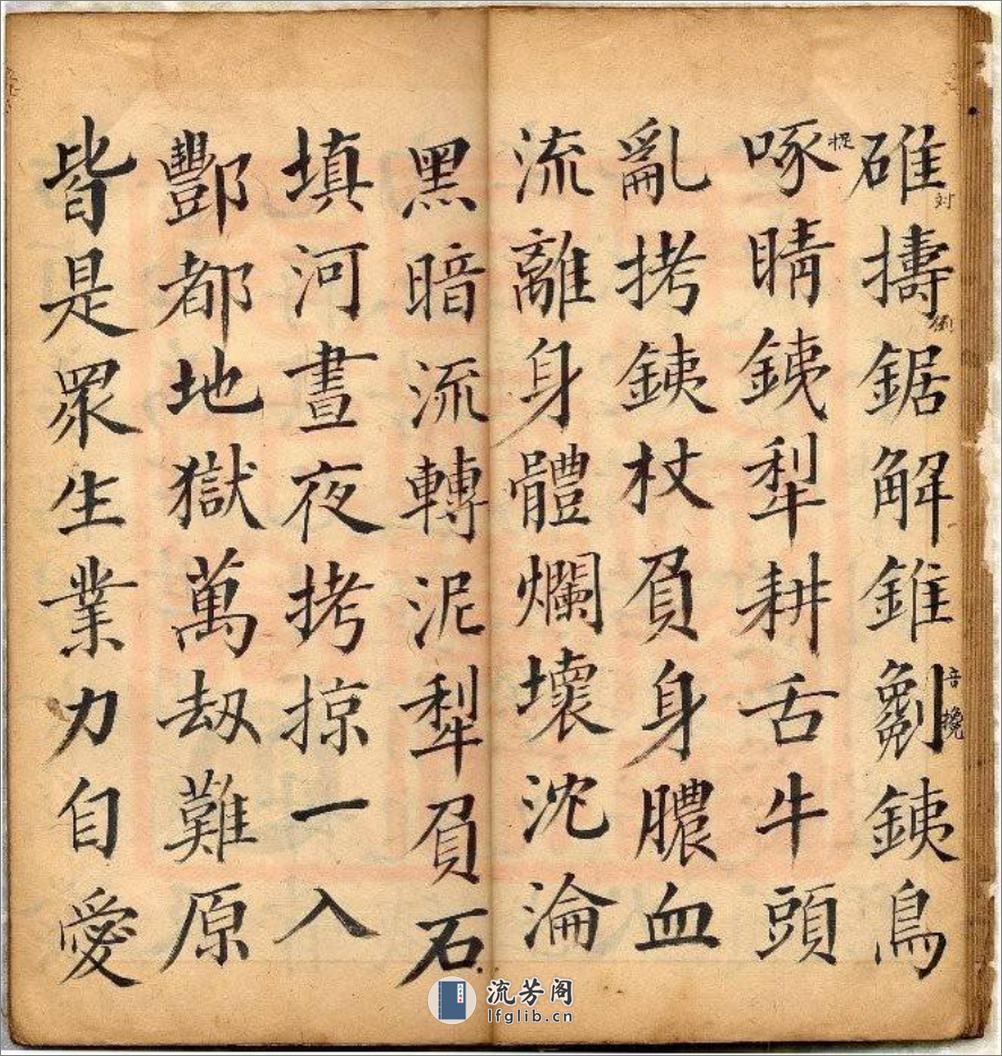 碓擣鋸解錐劖銕鳥
啄睛銕犁耕舌牛頭
亂拷銕杖負身膿血
流離身體爛壞沈淪
黑暗流轉泥犁負石
填河晝夜拷掠一入
酆都地獄萬劫難原
皆是眾生業力自愛
対
倒
音
捉
流芳阁
lfglib.cn